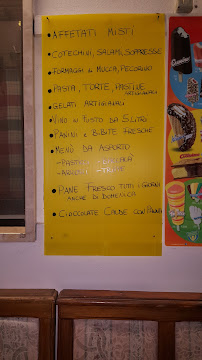 • AFFETATI MISTI
• COTECHINI, SALAMI, SOPPRESSE
• FORMAGGI di MUCCA, PECORINO
• PASTA, TORTE, PASTINE
ARTIGIANALI
• GELATI ARTIGIANALI
• VINO in FUSTO DA 5 LITRI
• PANINI e BIBITE FRESCHE
• MENÙ DA ASPORTO
• PANE FRESCO TUTTI i GIORNI
ANCHE DI DOMENICA
• CIOCCOLATE CALDE CON PANNA